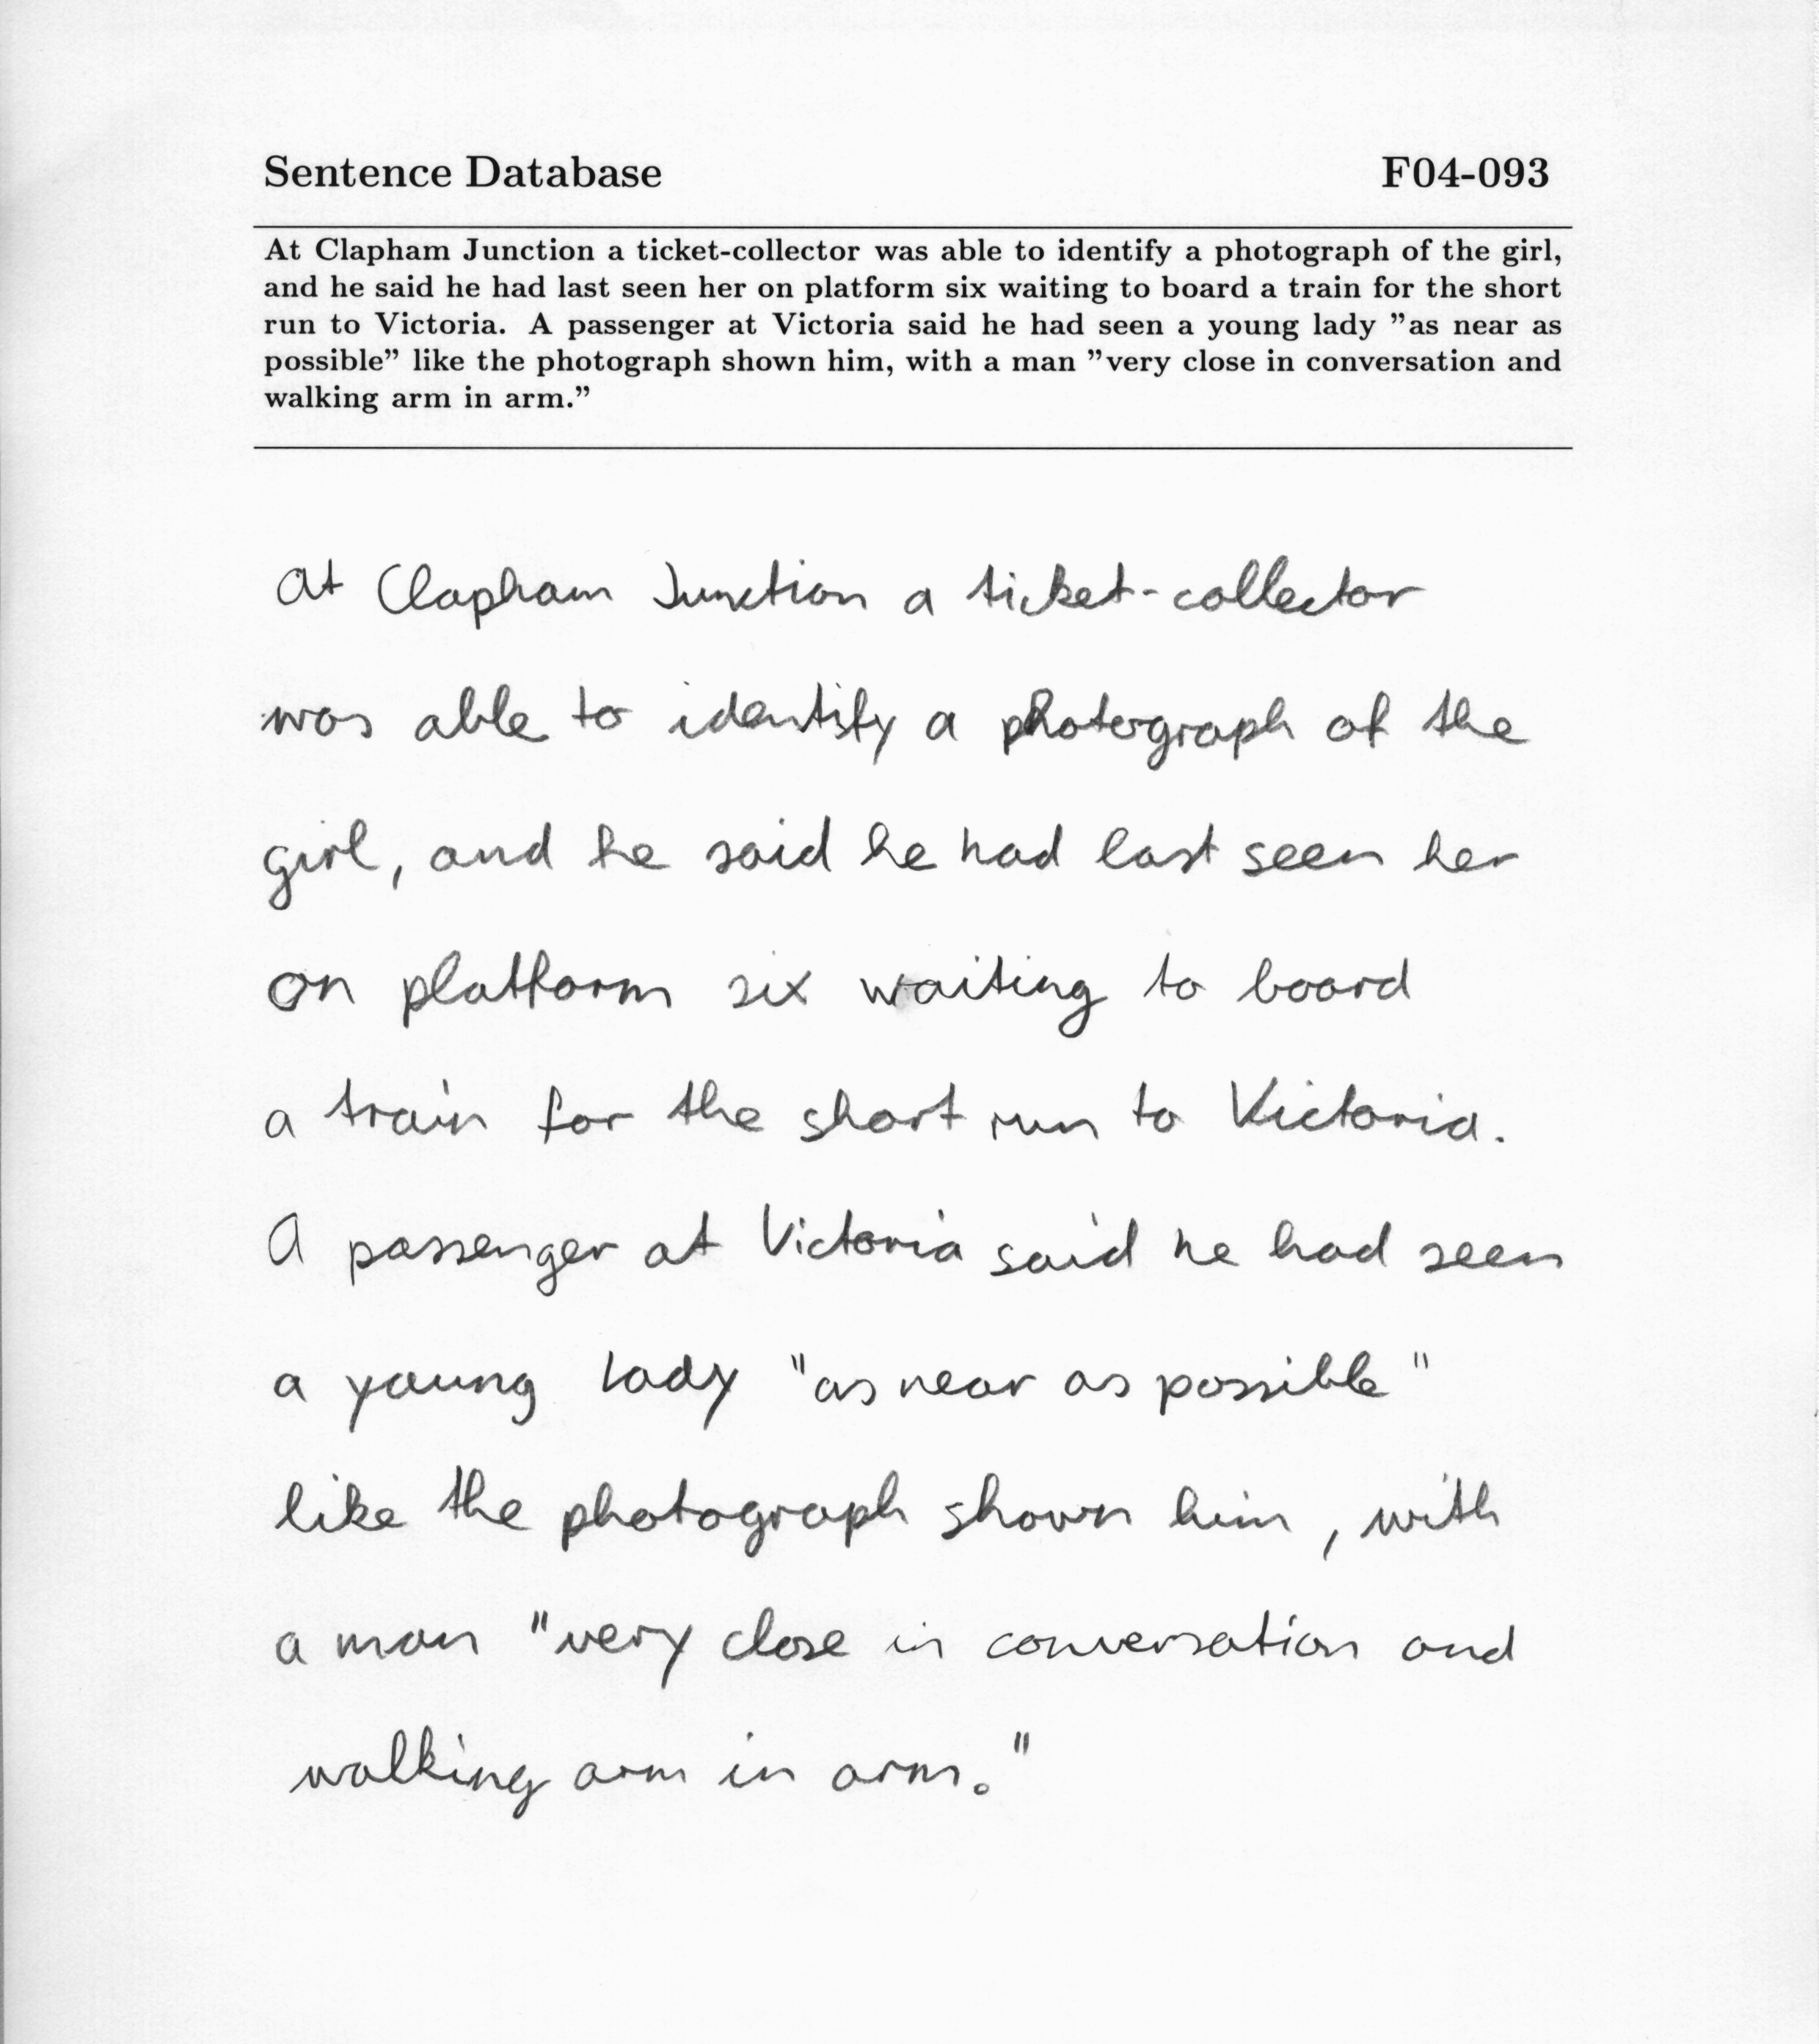 Sentence Database F04-093
At Clapham Junction a ticket-collector was able to identify a photograph of the girl,
and he said he had last seen her on platform six waiting to board a train for the short
run to Victoria. A passenger at Victoria said he had seen a young lady "as near as
possible" like the photograph shown him, with a man "very close in conversation and
walking arm in arm."
At Clapham Junction a ticket-collector
was able to identify a photograph of the
girl, and he said he had last seen her
on platform six waiting to board
a train for the short run to Victoria.
A passenger at Victoria said he had seen
a young lady "as near as possible"
like the photograph shown him, with
a man "very close in conversation and
walking arm in arm."